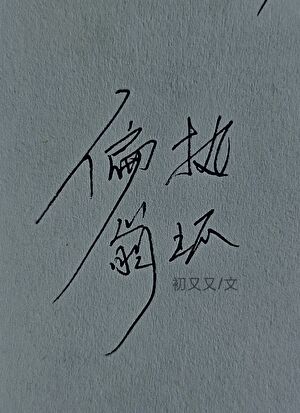 偏执
崩坏
初又又/文